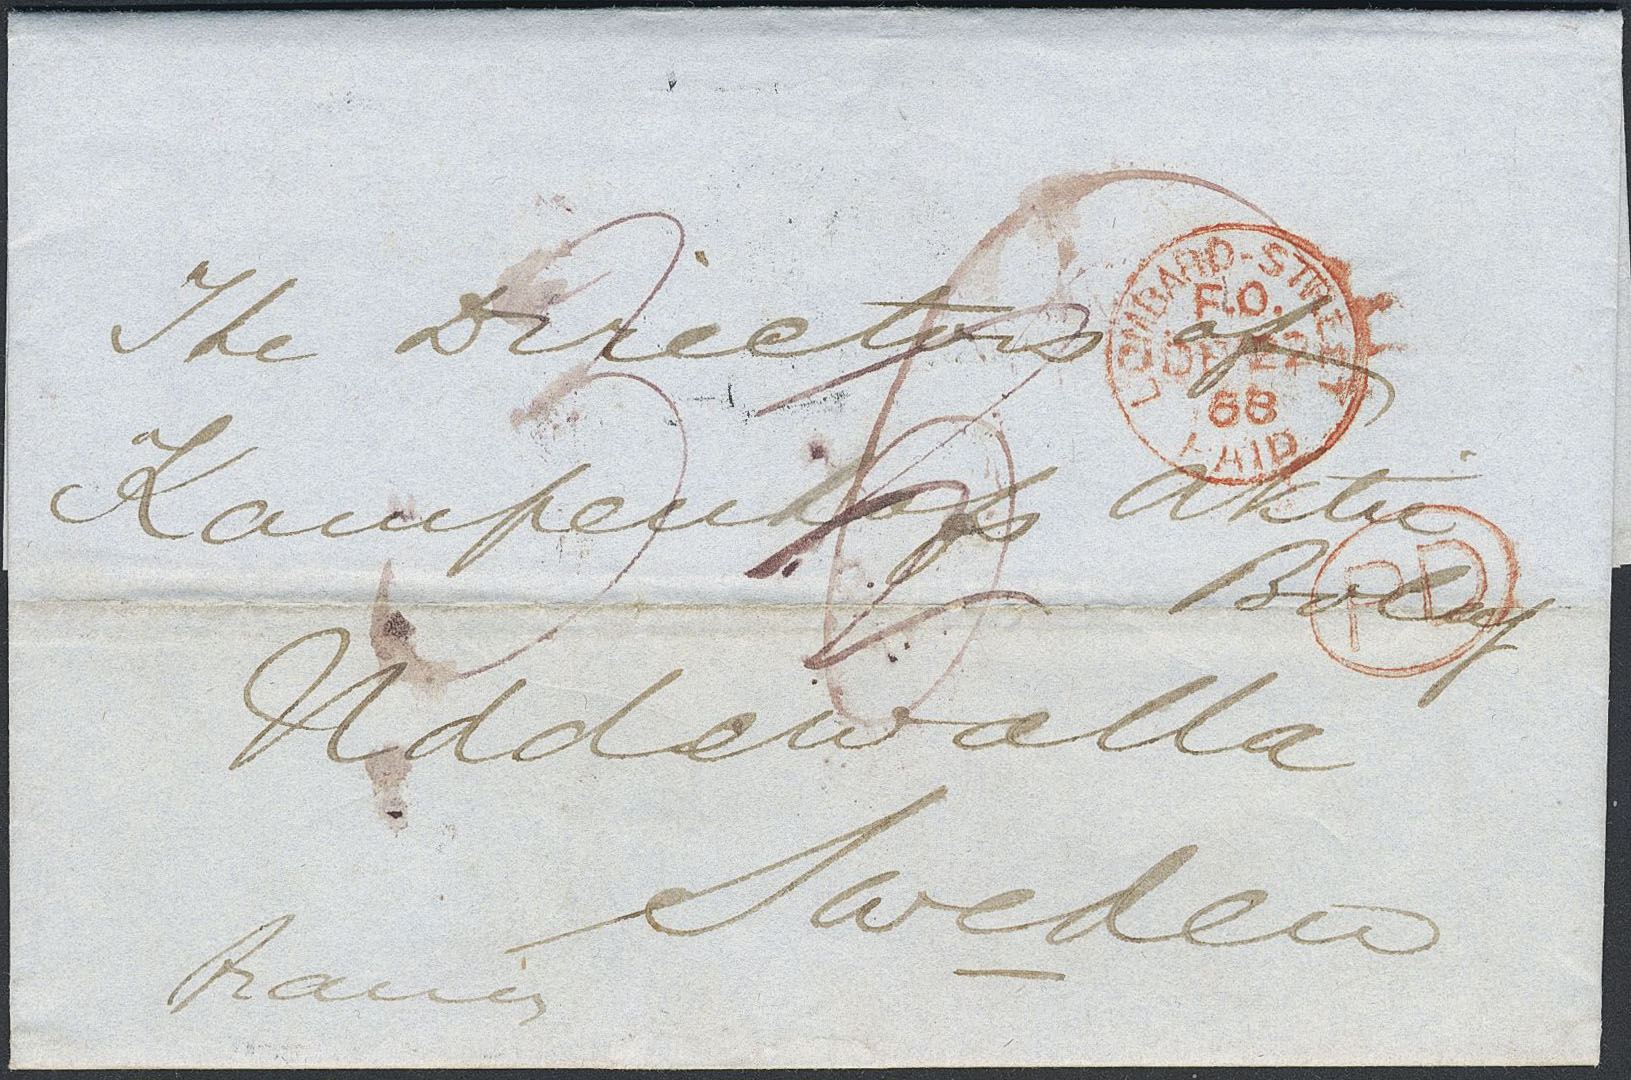 The Directors of
Kampenhofs Aktie
Bolag
Uddewalla
Sweden
LOMBARD-STREET
F.O.
68
PAID
PD